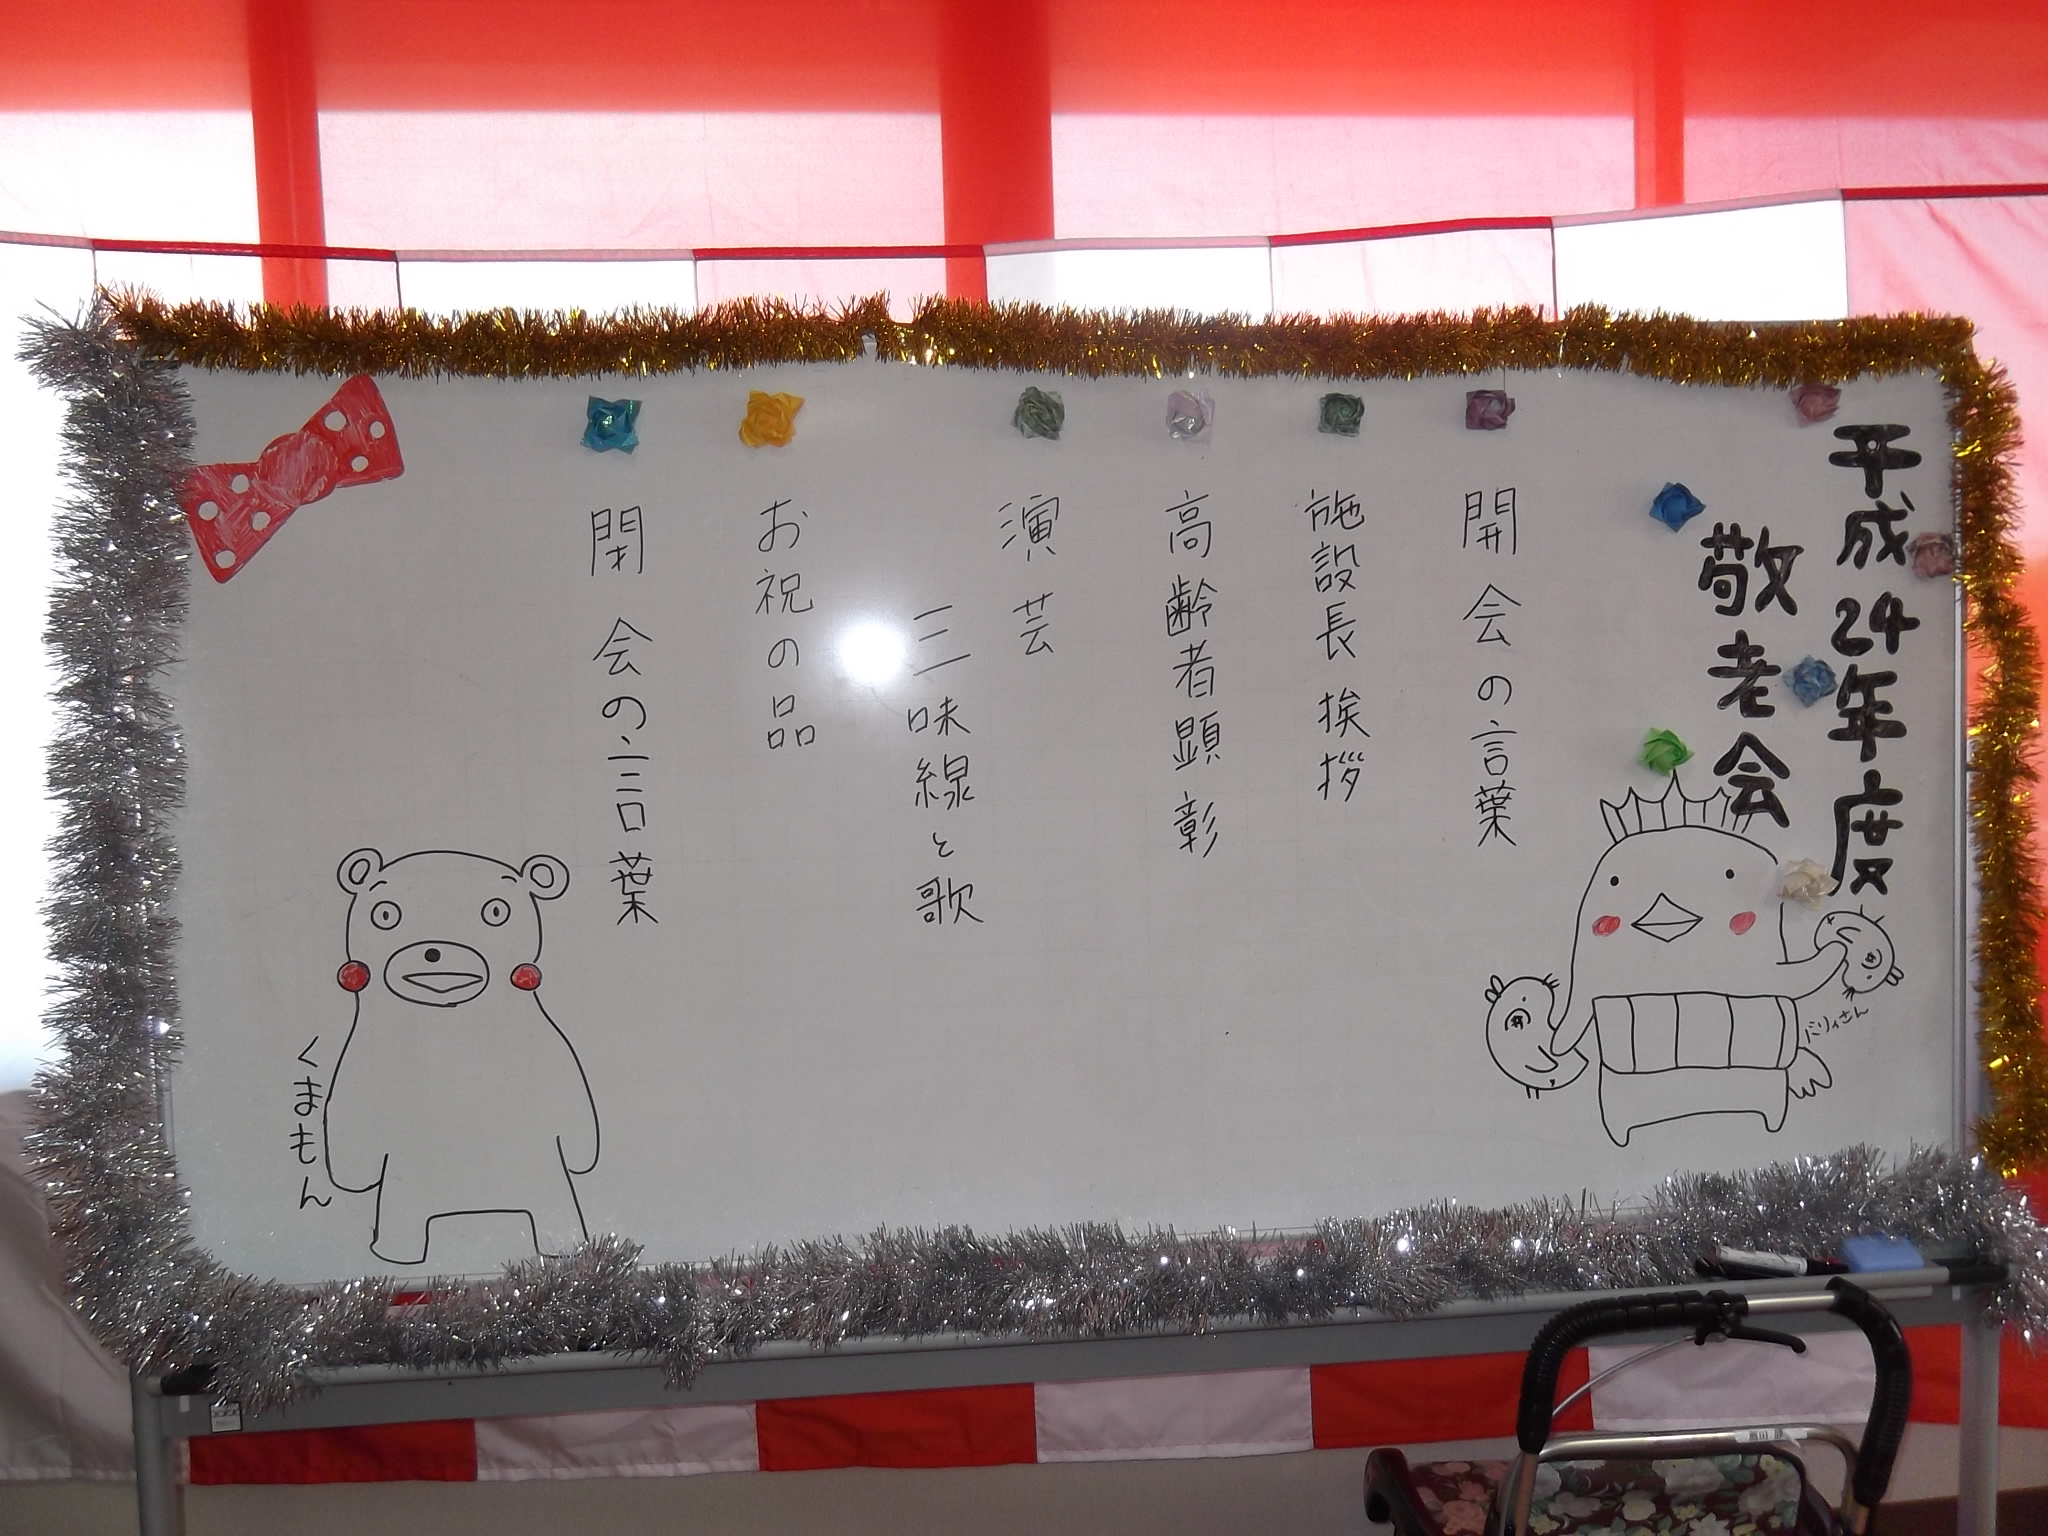 平成24年度
敬老会
開会の言葉
施設長挨拶
高齢者顕彰
演芸
三味線と歌
お祝の品
閉会の言葉
バリィさん
くまもん